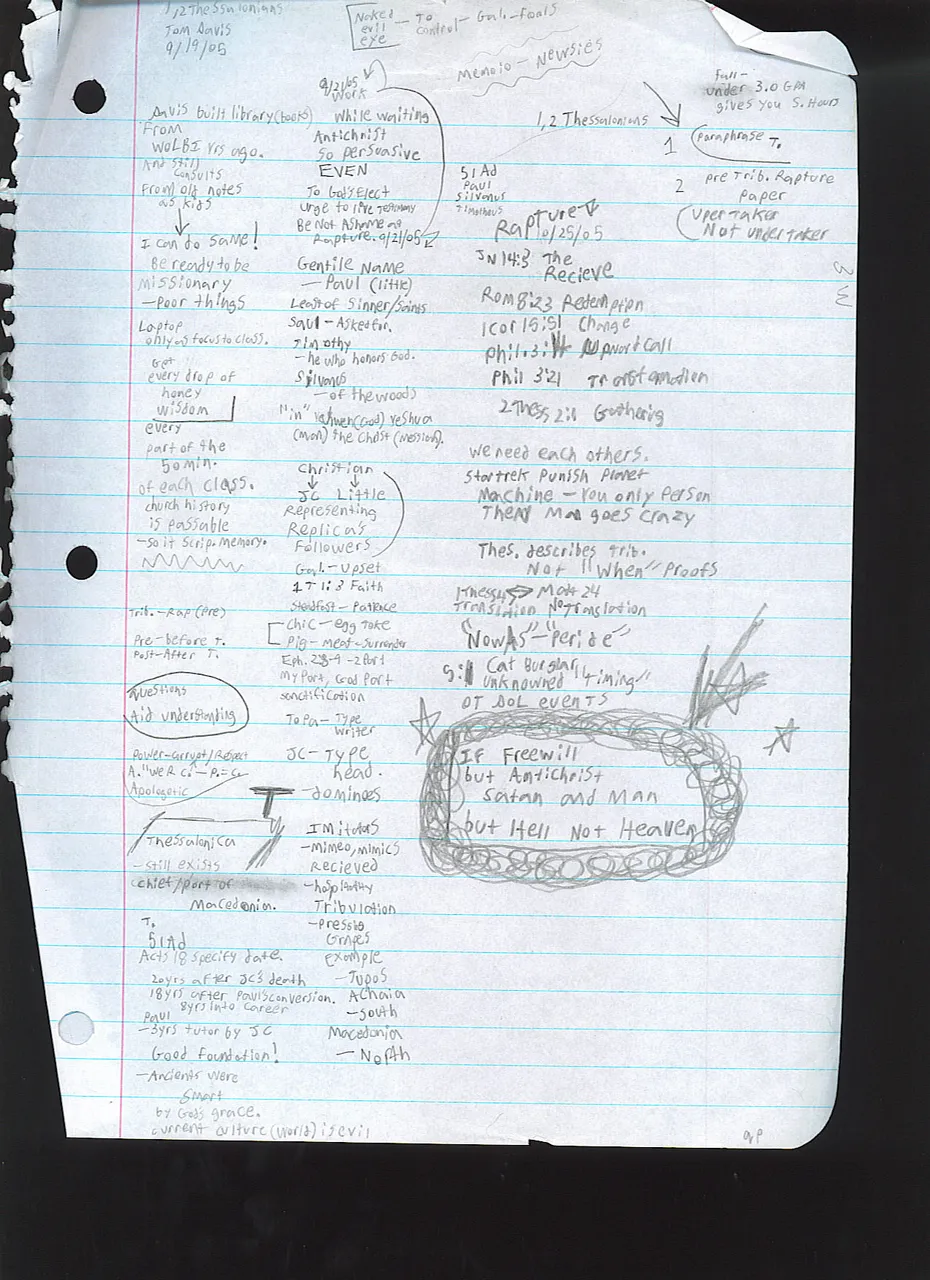 1,2 Thessalonians
Tom Davis
9/19/05
Naked
evil
eye
To
control
Gal.-Fouls
Memoio - Newsies
Full-
under 3.0 GPA
gives you 5. Hours
Davis built library (books)
From
WOLBI Yrs ago.
And still
consults
From old notes
as kids
I can do same!
Be ready to be
missionary
-Poor things
Laptop
only as focus to class.
Get
every drop of
honey
wisdom
every
part of the
50 min.
of each class.
church history
is passable
-so it Scrip. Memory.
Trib.-Rap (Pre)
Pre-before T.
Post-After T.
Questions
Aid understanding
Power-corrupt/Respect
Apologetic
T
Thessalonica
-still exists
chief/part of
Macedonia.
T.
51Ad
Acts 18 specify date.
20yrs after JC's death
18yrs after Paul's conversion.
Paul 8yrs into career
-3yrs tutor by JC
Good foundation!
-Ancients were
smart
by God's grace.
current culture (world) is evil
9/21/05
Work
while waiting
Antichrist
so persuasive
EVEN
To God's Elect
urge to live Testimony
Be Not Ashame as
Rapture. 9/21/05
Gentile Name
-Paul (little)
Least of Sinner/Saints
Saul-Asked for.
Timothy
-he who honors God.
Silvanus
-of the woods
"in" Yahweh (God) Yeshua
(man) the Christ (messiah).
Christian
JC Little
Representing
Replicas
Followers
Gal.-Upset
1 T 1:3 Faith
Steadfast-Patience
chic-egg Take
Pig-meat-surrender
Eph. 2:8-9-2 Part
My Part, God Part
sanctification
To Pa-Type
Writer
JC-Type
head.
-dominoes
Imitators
-mimeo, mimics
Recieved
-hospitality
Tribulation
-pressing
Grapes
example
-Tupos
Achaia
-South
Macedonia
-North
1,2 Thessalonians
1 Paraphrase T.
2 Pre Trib. Rapture
Paper
Uper Taker
Not under taker
51Ad
Paul
Silvanus
Timotheus
Rapture
10/25/05
JN 14:3 The
Recieve
Rom 8:23 Redemption
1 Cor 15:51 Change
Phil. 3:14 Upward Call
Phil 3:21 Transformation
2 Thess 2:1 Gathering
We need each others.
Startrek Punish Planet
Machine-You only Person
Then Man goes Crazy
Thes. describes trib.
Not "When" Proofs
1Thess 4 Matt 24
Translation No Translation
"Now As"-"Peri de"
5:1 Cat Burglar
unknowned "timing"
OT DOL events
If Freewill
but Antichrist
Satan and Man
but Hell Not Heaven